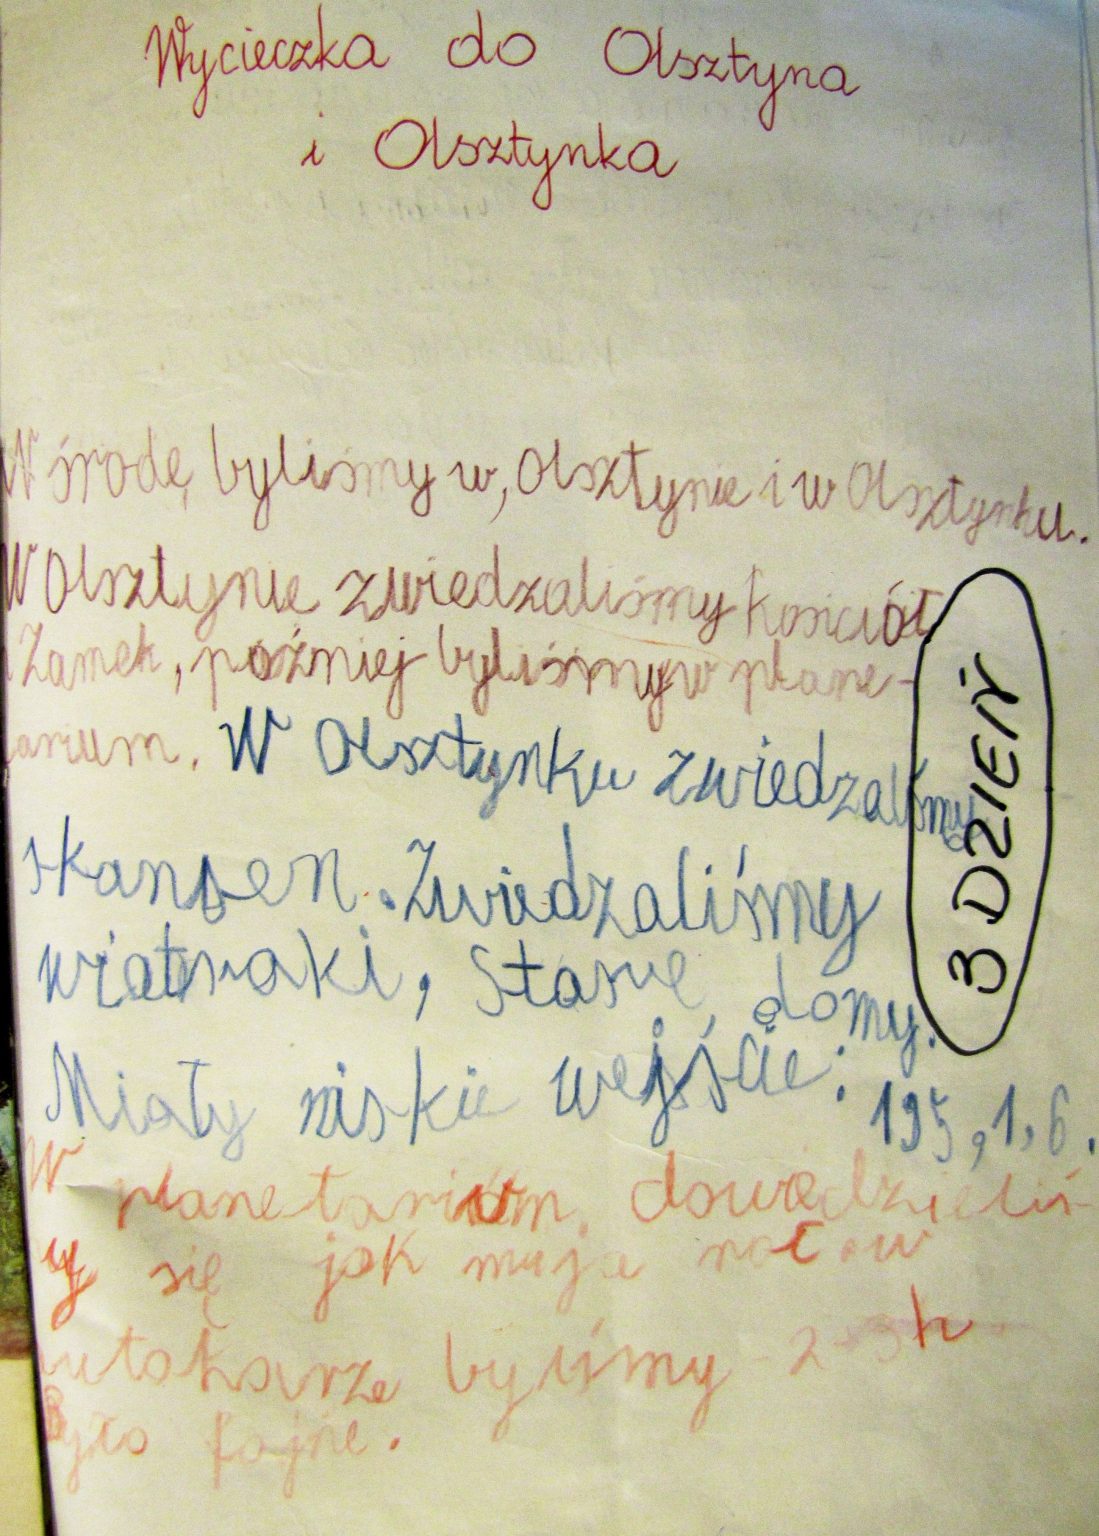 Wycieczka do Olsztyna
i Olsztynka
W środę byliśmy w, Olsztynie i w Olsztynku.
W Olsztynie zwiedzaliśmy kościół
i Zamek, poźniej byliśmy w plane-
tarium. W Olsztynku zwiedzaliśmy
skansen. Zwiedzaliśmy
wiatraki, Stare domy.
Miały niskie wejście: 195, 1,6.
W planetarium dowiedzieliś-
my się jak mija noc. w
autokarze byliśmy 2-3h
Było fajne.
3 DZIEŃ